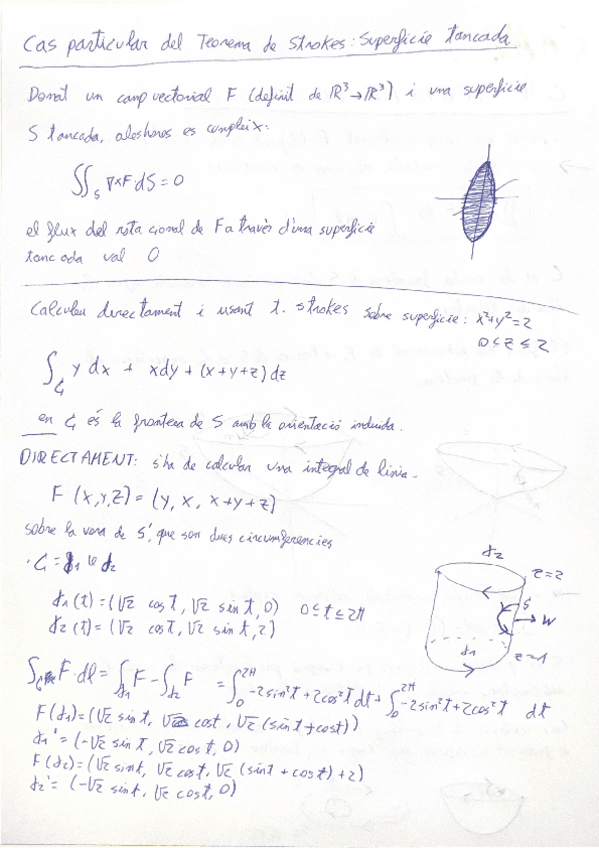 Cas particular del Teorema de Strokes: Superfície tancada
Donat un camp vectorial F (definit de ℝ³→ℝ³) i una superfície
S tancada, aleshores es compleix:
∬_S ∇×F·dS = 0
el flux del rotacional de F a través d'una superfície
tancada val 0
Calculeu directament i usant t. strokes sobre superfície: x²+y²=2
0≤z≤2
∫_C y dx + x dy + (x+y+z) dz
en C és la frontera de S amb la orientació induida.
DIRECTAMENT: s'ha de calcular una integral de línia.
F(x,y,z) = (y, x, x+y+z)
sobre la vora de S, que son dues circumferencies
· C = γ1 ∪ γ2
γ1(t) = (√2 cos t, √2 sin t, 0) 0≤t≤2π
γ2(t) = (√2 cos t, √2 sin t, 2)
γ2
z=2
S
N
γ1
z=1
∫_C F·dl = ∫_γ1 F - ∫_γ2 F = ∫_0^2π -2sin²t+2cos²t dt + ∫_0^2π -2sin²t+2cos²t dt
F(γ1) = (√2 sin t, √2 cos t, √2 (sin t + cos t))
γ1' = (-√2 sin t, √2 cos t, 0)
F(γ2) = (√2 sin t, √2 cos t, √2 (sin t + cos t) + 2)
γ2' = (-√2 sin t, √2 cos t, 0)